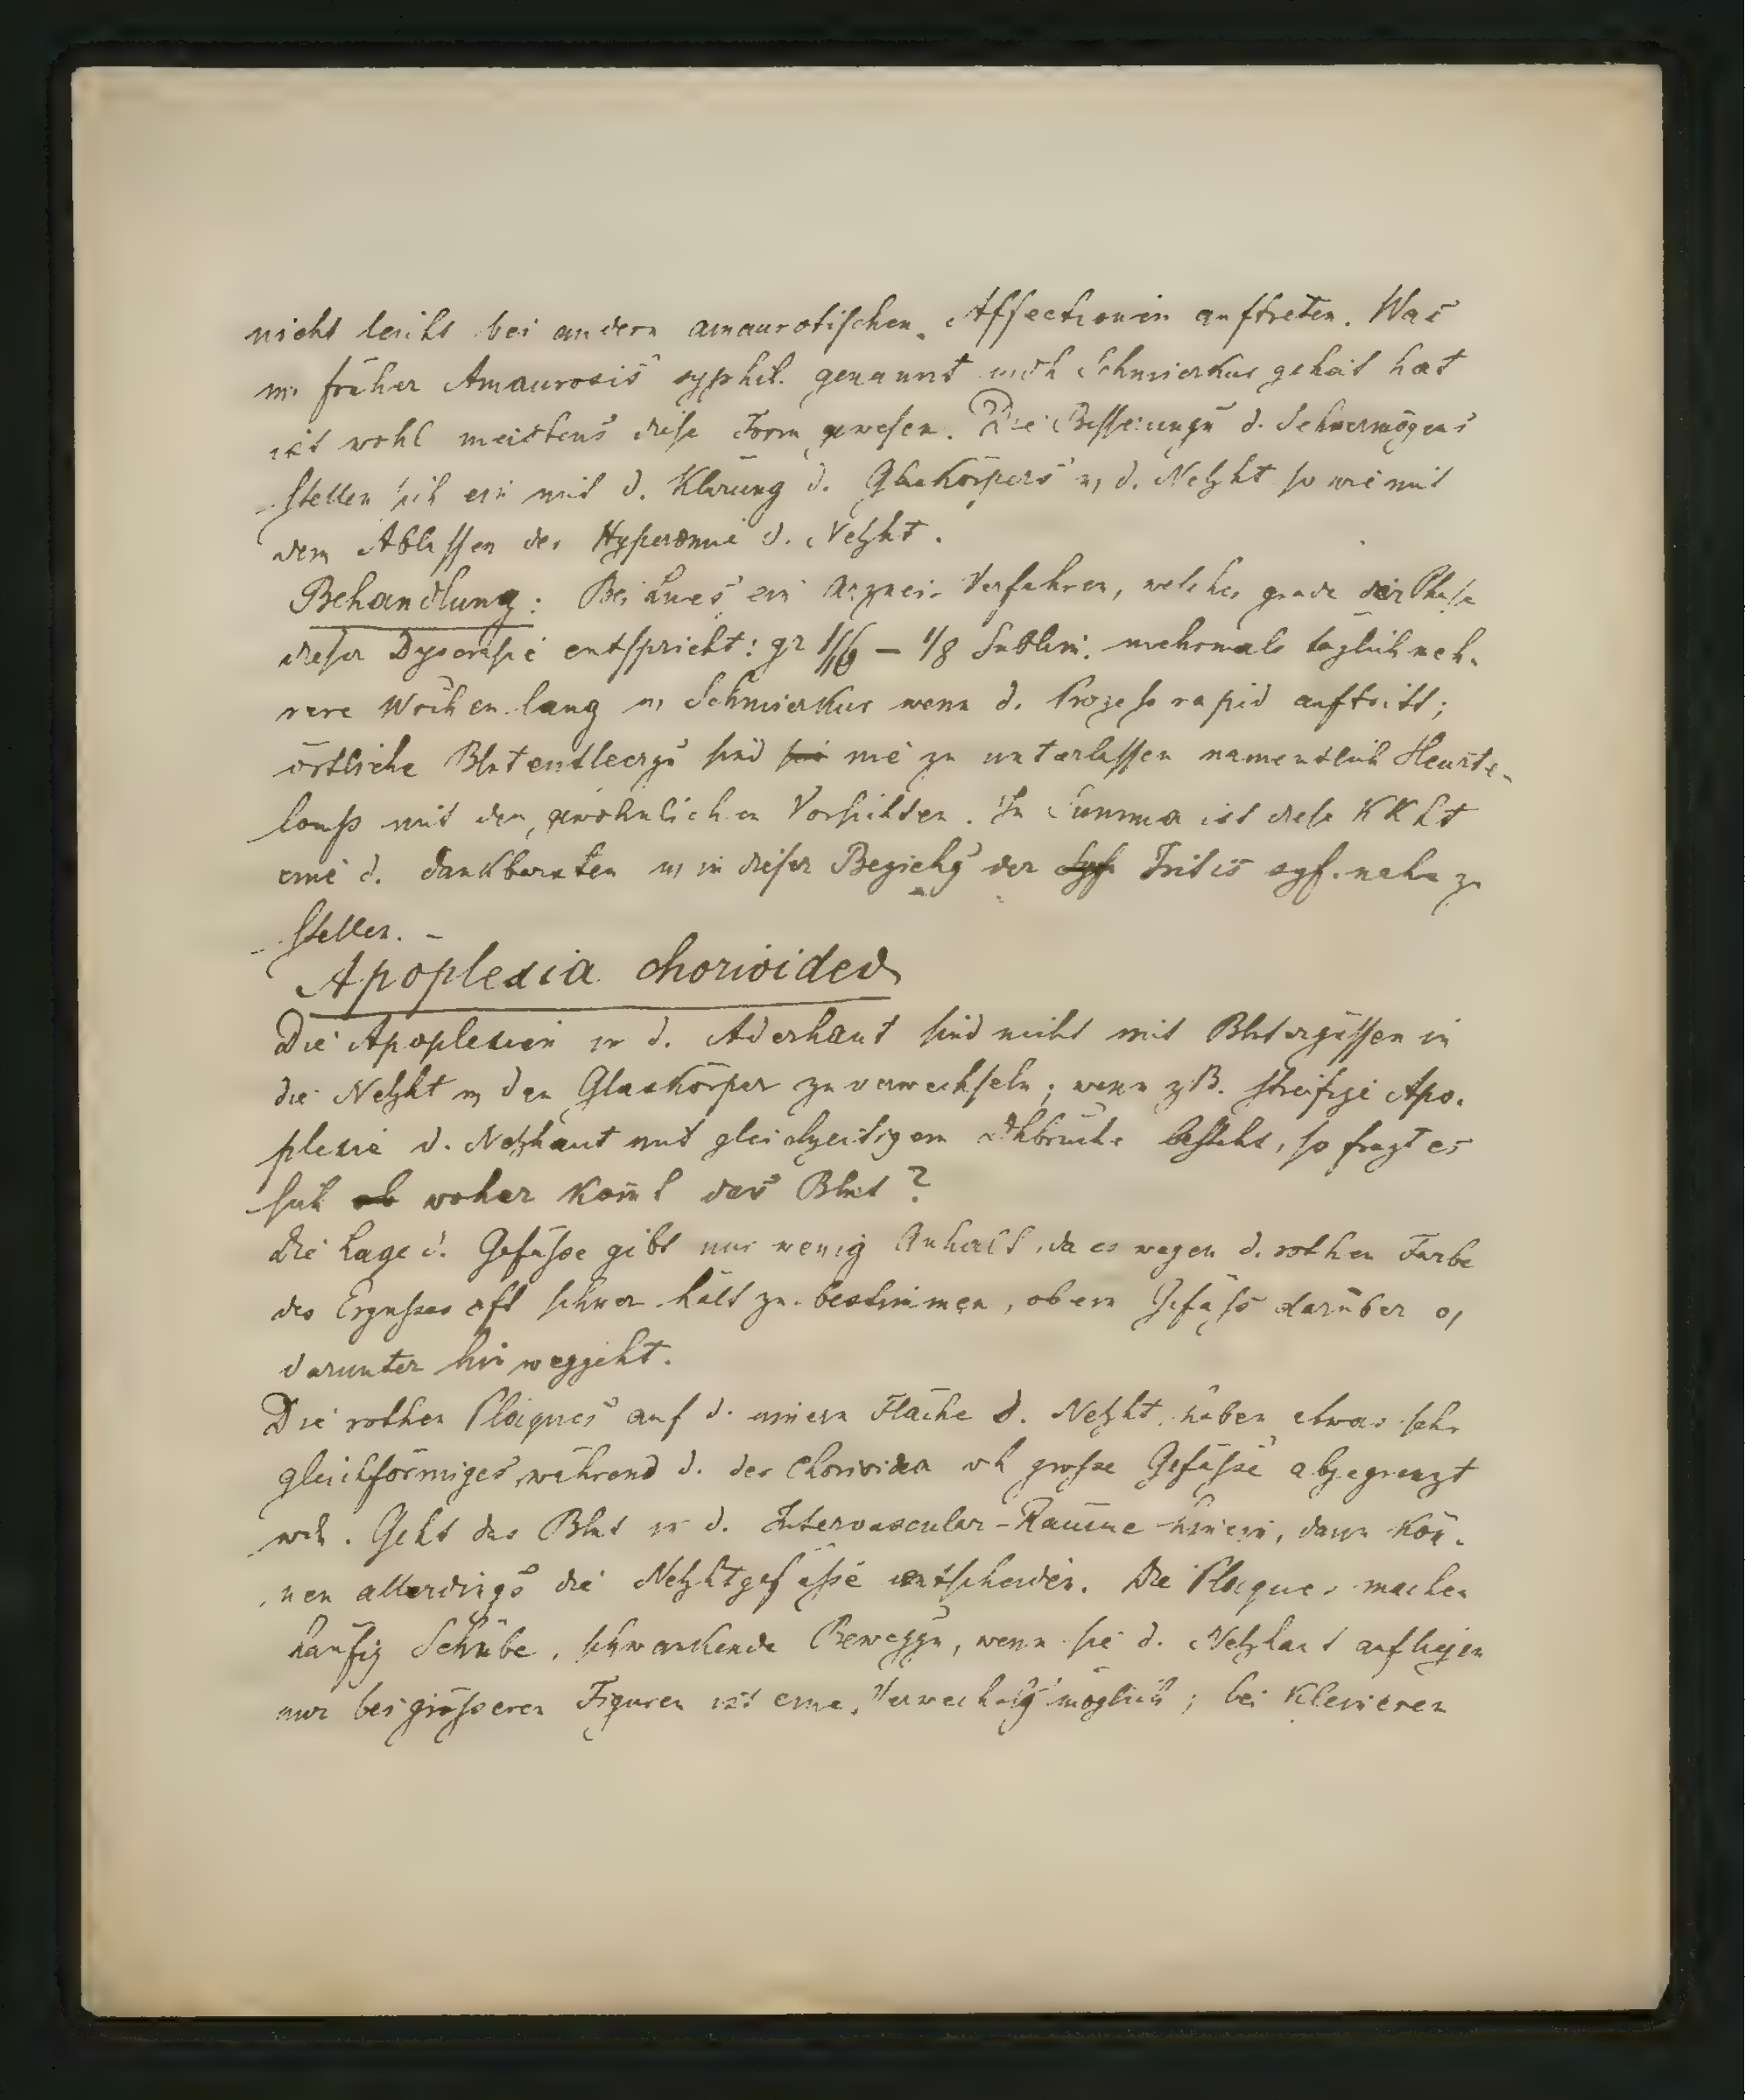 nicht leicht bei andern amaurotischen Affectionen auftreten. Was
m. früher Amaurosis syphil. genannt durch Schmierkur geheilt hat
ist wohl meistens diese Form gewesen. Die Besserungen d. Sehvermögens
stellen sich ein mit d. Klärung d. Glaskörpers u. d. Netzht so wie mit
dem Ablassen der Hyperämie d. Netzht.
Behandlung: Bei Lues ein Arznei-Verfahren, welches grade der Phase
dieser Dyscrasie entspricht: gr 1/16 – 1/8 Sublim. mehrmals täglich meh-
rere Wochen lang u. Schmierkur wenn d. Prozess rapid auftritt;
örtliche Blutentleergn sind nie zu unterlassen namentlich Heurte-
loups mit den gewöhnlichen Vorsichten. In Summa ist diese KKht
eine d. dankbarsten u. in dieser Beziehg der Iritis syf. nahe zu
stellen. –
Apoplexia chorioidea
Die Apoplexien in d. Aderhaut sind nicht mit Blutergüssen in
die Netzht u. den Glaskörper zu verwechseln; wenn z.B. streifige Apo-
plexie d. Netzhaut mit gleichzeitigem besteht, so fragt es
sich ob woher kom̄t das Blut?
Die Lage d. Gefässe gibt nur wenig Anhalt, da es wegen d. rothen Farbe
des Ergusses oft schwer hält zu bestimmen, ob ein Gefäss darüber o/
darunter hinweggeht.
Die rothen Plaques auf d. innern Fläche d. Netzht haben etwas sehr
gleichförmiges, während d. der Chorioidea dch grosse Gefässe abgegrenzt
wdn. Geht das Blut in d. Intervascular-Räume hinein, dann kön-
nen allerdings die Netzhtgefässe entscheiden. Die Plaques machen
häufig Schübe, schwankende Beweggn, wenn sie d. Netzhaut aufliegen
nur bei grösseren Figuren ist eine Verwechslg möglich; bei kleineren